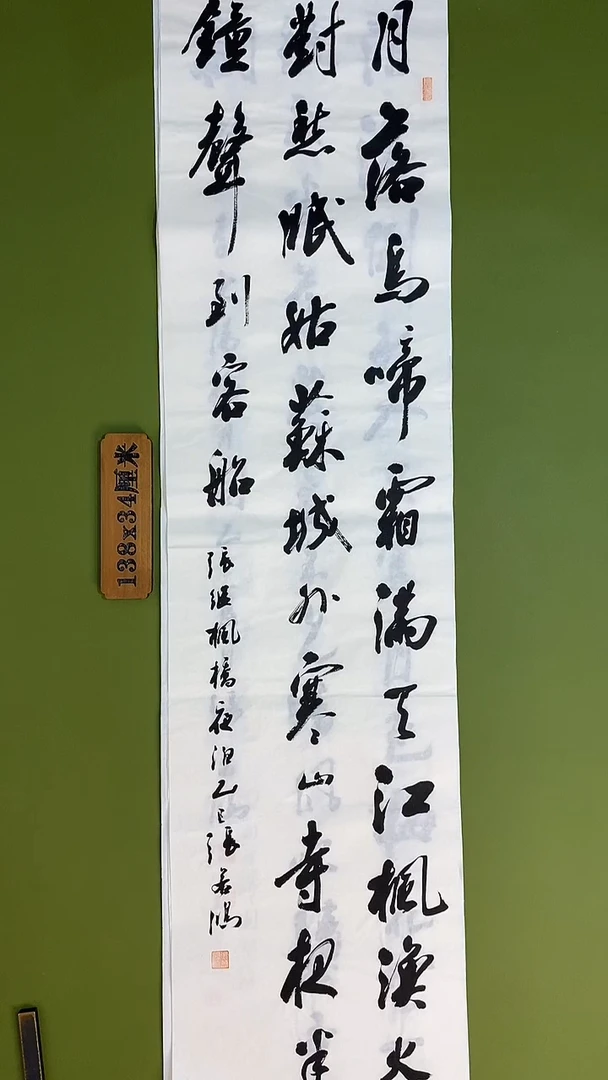 月落烏啼霜滿天江楓漁火
對愁眠姑蘇城外寒山寺夜半
鐘聲到客船
張繼楓橋夜泊乙巳張若鴻
138x34厘米